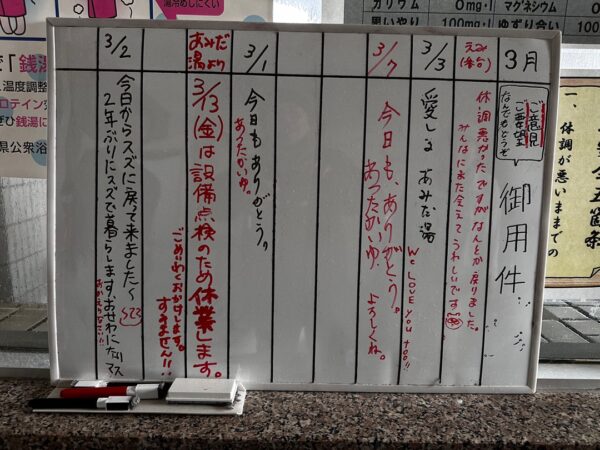 3月
ご意見
ご要望
なんでもどうぞ
御用件
体調悪かったですがなんとか戻りました。
みんなにまた会えてうれしいです
3/3
愛しるあみだ湯
We LOVE you too!!
3/7
今日も、ありがとう。
あったかいゆ。よろしくね。
3/1
今日もありがとう。
あったかいゆ。
あみだ湯より
3/13(金)は設備点検のため休業します。
ごめいわくおかけします。
すみません!!
3/2
今日からスズに戻って来ました〜
2年ぶりにスズで暮らします。おせわになりマス
おかえりなさい!!
カリウム 0mg
マグネシウム 0
思いやり 100mg
ゆずり合い 100
湯冷めしにくい
「銭湯
温度調整
ロテイン
ぜひ銭湯に
県公衆浴
一、体調が悪いままでの